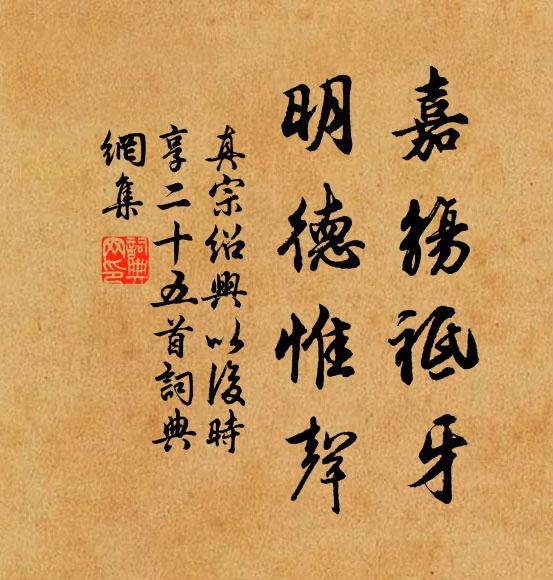 嘉觴祗牙
明德惟聲
真宗紹興以後時
享二十五首詞典
網集
詞典
網印